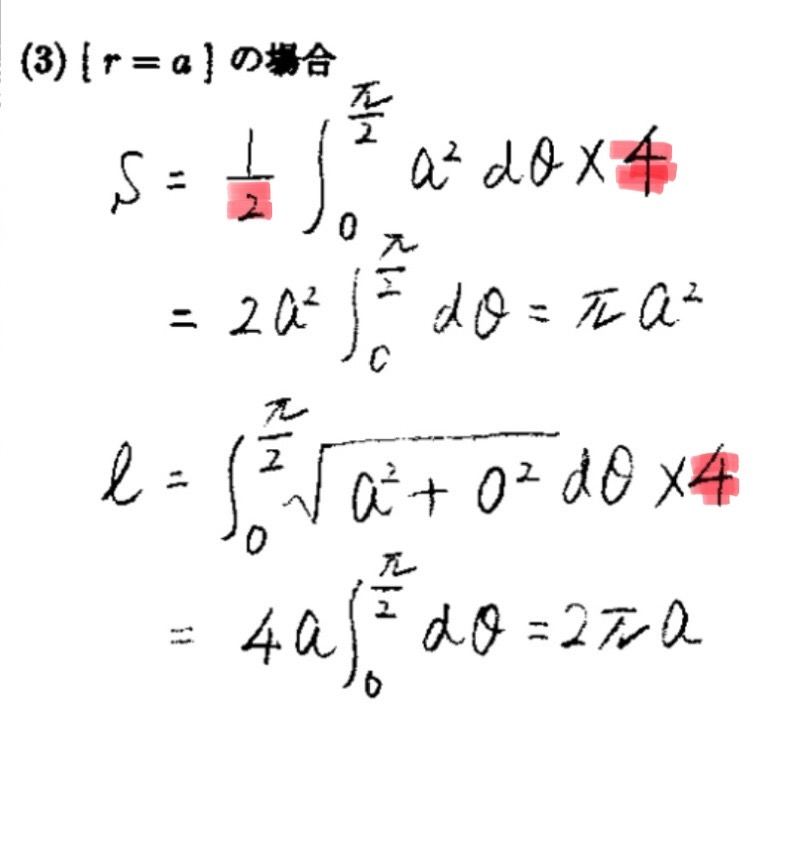 (3) [ r = a ] の場合
S = 1/2 ∫₀^{π/2} a² dθ × 4
= 2a² ∫₀^{π/2} dθ = πa²
ℓ = ∫₀^{π/2} √(a² + 0²) dθ × 4
= 4a ∫₀^{π/2} dθ = 2πa